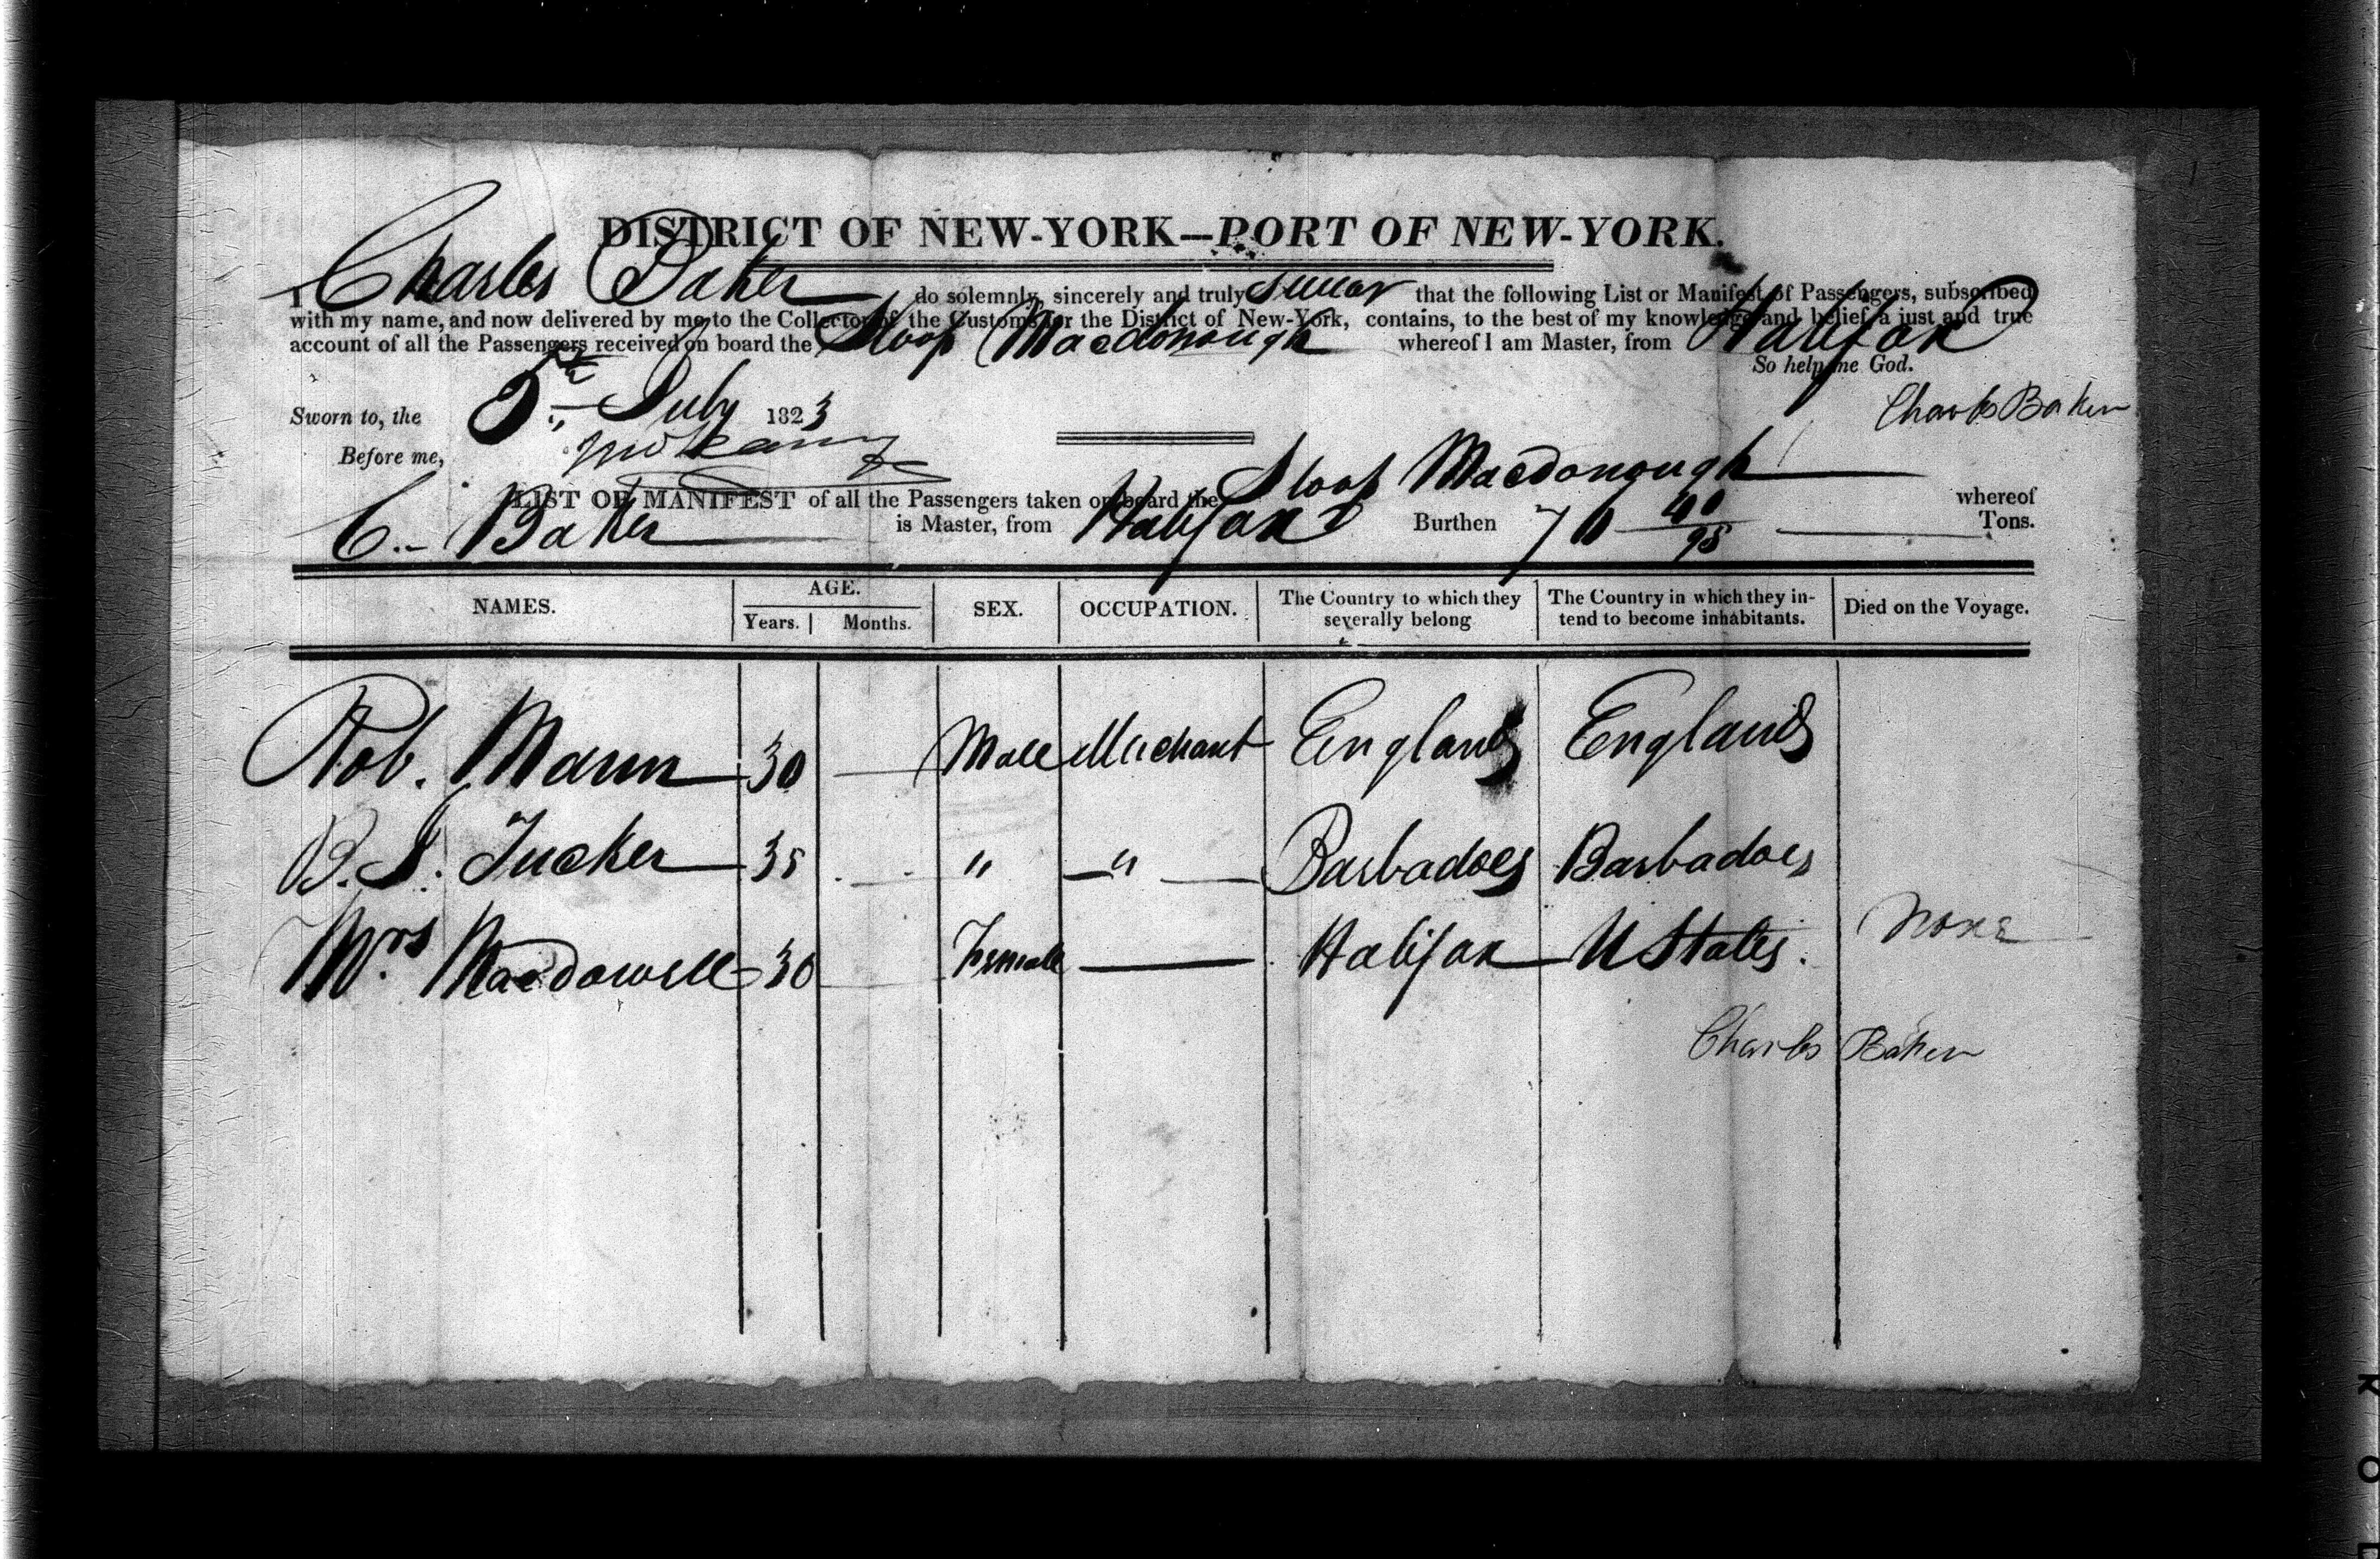 DISTRICT OF NEW-YORK—PORT OF NEW-YORK.
I Charles Baker do solemnly, sincerely and truly swear that the following List or Manifest of Passengers, subscribed
with my name, and now delivered by me to the Collector of the Customs for the District of New-York, contains, to the best of my knowledge and belief, a just and true
account of all the Passengers received on board the Sloop Macdonough whereof I am Master, from Halifax
So help me God.
Sworn to, the 5th July 1823 Charles Baker
Before me,
LIST OR MANIFEST of all the Passengers taken on board the Sloop Macdonough whereof
C. Baker is Master, from Halifax Burthen 70 40/95 Tons.
NAMES. AGE. Years. Months. SEX. OCCUPATION. The Country to which they severally belong The Country in which they intend to become inhabitants. Died on the Voyage.
Rob. Mann 30 — Male Merchant England England
B. S. Tucker 35 — " —"— Barbadoes Barbadoes
Mrs Macdowell 30 — Female — Halifax U States. None
Charles Baker